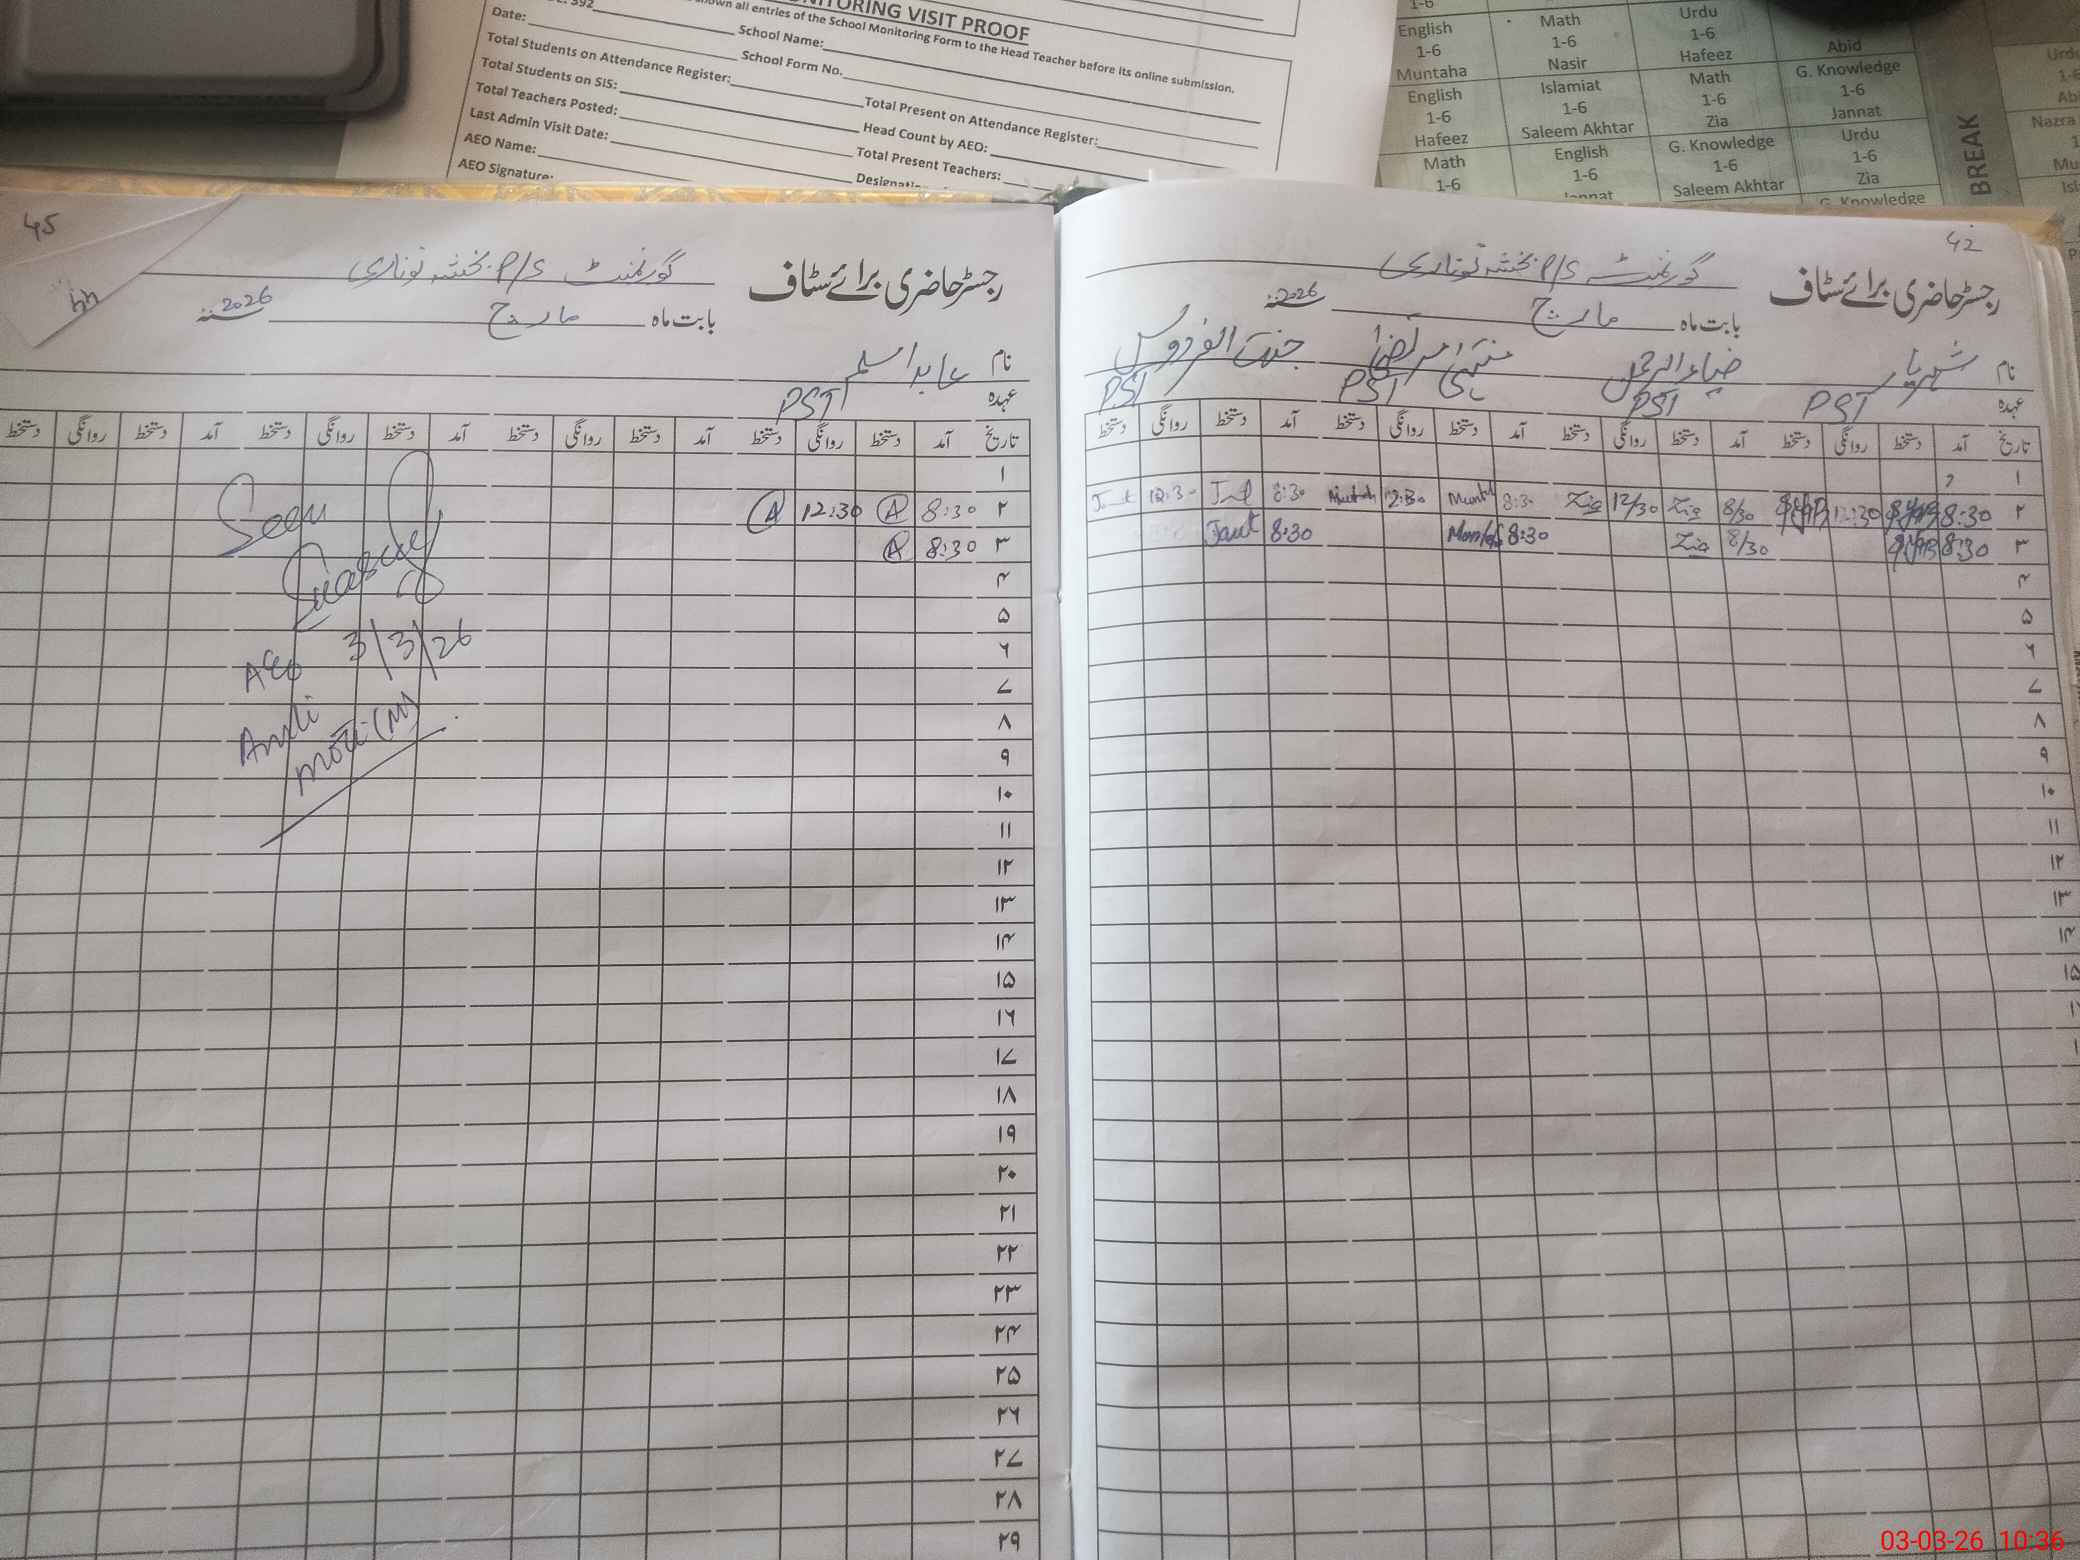 MONITORING VISIT PROOF
shown all entries of the School Monitoring Form to the Head Teacher before its online submission.
Date:
School Name:
Total Students on Attendance Register:
School Form No.
Total Students on SIS:
Total Present on Attendance Register:
Total Teachers Posted:
Head Count by AEO:
Last Admin Visit Date:
Total Present Teachers:
AEO Name:
AEO Signature:
1-6
English Math Urdu
1-6 1-6 1-6 Abid
Muntaha Nasir Hafeez G. Knowledge
English Islamiat Math 1-6
1-6 1-6 1-6 Jannat
Hafeez Saleem Akhtar Zia Urdu
Math English G. Knowledge 1-6
1-6 1-6 1-6 Zia
Jannat Saleem Akhtar G. Knowledge
BREAK
Nazra
42
رجسٹر حاضری برائے سٹاف گورنمنٹ P/S
بابت ماہ مارچ 2026
نام شہریار ضیاء الرحمن منتہیٰ مرتضیٰ جنت الفردوس
عہدہ PST PST PST PST
تاریخ آمد دستخط روانگی دستخط آمد دستخط روانگی دستخط آمد دستخط روانگی دستخط آمد دستخط روانگی دستخط
۱
۲ 8:30 12:30 8/30 Zia 12/30 Zia 8:30 12:30 8:30 12:30
۳ 8:30 8/30 Zia 8:30 8:30
۴
۵
۶
۷
۸
۹
۱۰
۱۱
۱۲
۱۳
۱۴
۱۵
45
44
رجسٹر حاضری برائے سٹاف گورنمنٹ P/S
بابت ماہ مارچ 2026
نام عابد اسلم
عہدہ PST
تاریخ آمد دستخط روانگی دستخط آمد دستخط روانگی دستخط آمد دستخط روانگی دستخط آمد دستخط روانگی دستخط
۱
۲ 8:30 A 12:30 A
۳ 8:30 A
۴
۵
۶
۷
۸
۹
۱۰
۱۱
۱۲
۱۳
۱۴
۱۵
۱۶
۱۷
۱۸
۱۹
۲۰
۲۱
۲۲
۲۳
۲۴
۲۵
۲۶
۲۷
۲۸
۲۹
Seen
AEO 3/3/26
(M)
03-03-26 10:36